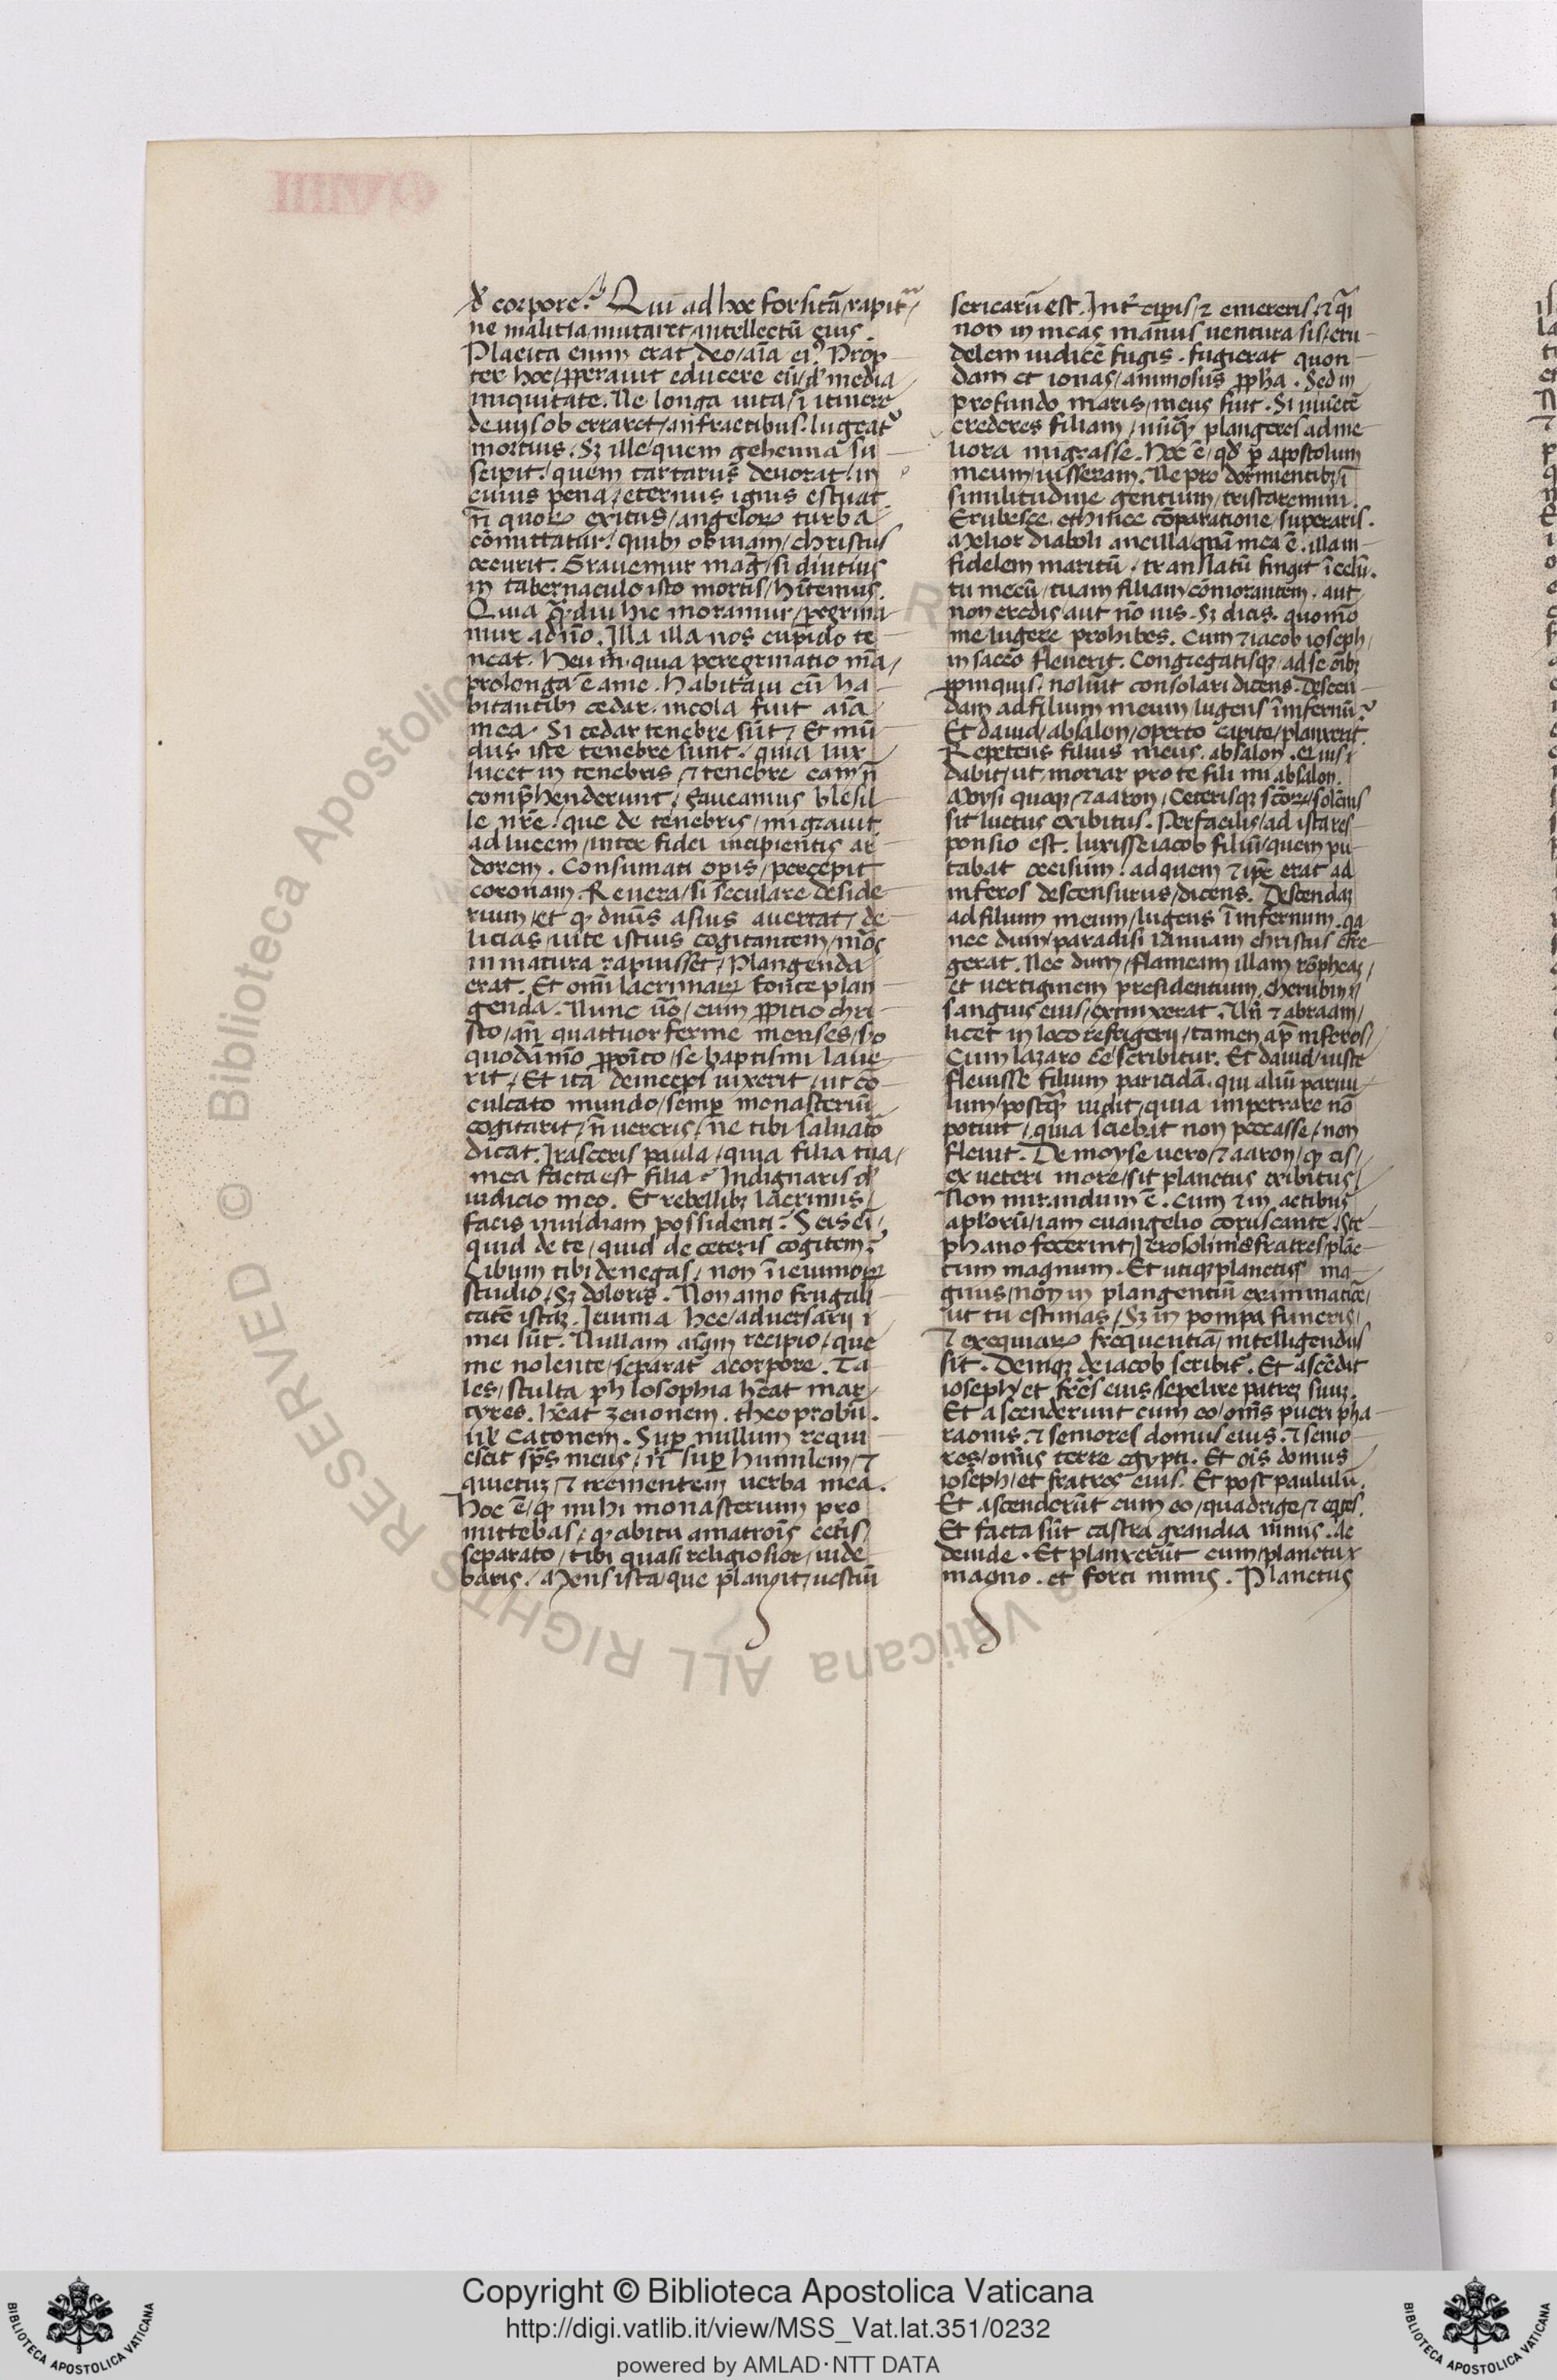 de corpore? Qui ad hoc forsitā rapit᷑ /
ne malitia mutaret intellectū eius.
Placita enim erat deo / aīa ei᷒. Prop
ter hoc / ꝓperauit educere eū / de media
iniquitate. Ne longa uita / ī itinere
deuijs ob erraret / anfractibus. lugeat᷑
mortuus. Sꝫ ille / quem gehenna su
scipit / quem tartarus deuorat / in
cuius pena / eternus ignis estuat.
n̄ quoꝝ exitus / angeloꝝ turba
cōmittatur / quibꝫ obuiam / christus
occurit. Grauemur mag̃ / si diutius
in tabernaculo isto mortis / hītemus.
Quia q̄ᷓdiu hic moramur / peregrina
mur a dn̄o. Illa illa nos cupido te
neat. Heu m̄. quia peregrinatio m̄a /
prolonga ē a me. habitaui cū ha
bitantibꝫ cedar. incola fuit aīa
mea. Si cedar tenebre sūt / Et mū
dus iste tenebre sunt / quia lux
lucet in tenebris / ⁊ tenebre eam n̄
comp̄henderunt / faueamus blesil
le nr̄e / que de tenebris / migrauit
ad lucem / inter fidei incipientis ar
dorem. Consumati op̄is / percepit
coronam. Reuera / si seculare deside
rium / et qꝫ dn̄us a suis auertat / de
licias uite istius cogitantem / mōs
inmatura rapuisset / Plangenda
erat. Et om̄i lacrimaꝝ fonte plan
genda. Nunc ūo / cum ꝓpitio chri
sto / an̄ quattuor ferme menses / so
quodāmō ꝓpoīto / se baptismi laue
rit / Et ita deinceps uixerit / ut cō
culcato mundo / semꝑ monasteriū
cogitarit / n̄ uereris / ne tibi saluatō
dicat. Irasceris paula / quia filia tua /
mea facta est filia? Indignaris de
iudicio meo. Et rebellibꝫ lacrimis /
facis inuidiam possidenti? Scis ei /
quid de te / quid de ceteris cogitem?
Cibum tibi denegas / non ī ieiunioꝝ
studio / sꝫ doloris. Non amo frugali
tatē istaꝫ. Ieiunia hec / aduersarij
mei sūt. Nullam aīam recipio / que
me nolente / separat᷑ a corpore. Ta
les / stulta phılosophia hēat mar
tyres. hēat zenonem. theoprobū.
ul̄ Catonem. Suꝑ nullum requi
escit sp̄s meus / n̄ suꝑ humilem / ⁊
quietuꝫ / ⁊ trementem uerba mea.
hoc ē / qꝫ mihi monasterium pro
mittebas / qꝫ abitu a matroīs cet̄is /
separato / tibi quasi religiosior / uide
baris / Mens ista / que plangit / uestiū
sericarū est. Int̄cipis / ⁊ emereris / ⁊ q̄ı
non in meas manus uentura sis / cru
delem iudicē fugis. fugierat quon
dam et ionas / animosus ꝓph̄a. Sed in
profundo maris / meus fuit. Si uiuētē
crederes filiam / nūqꝫ plangeres ad me
liora migrasse. Hoc ē / qd̄ ꝑ apostolum
meum / iusseram. Ne pro dormientibꝫ / ī
similitudine gentium / tristaremini.
Erubesce ethnice cōparatione / superaris.
Melior diaboli ancilla quā mea ē. illa in
fidelem maritū / translatū fingit ī celū.
tu mecū / tuam filiam / cōmorantem / aut
non credis / aut nō uis. Sꝫ dicis. quomō
me lugere prohibes. Cum ⁊ iacob ioseph /
in sacco fleuerit. Congregatisqꝫ ad se oībꝫ
ꝓpinquis / noluit consolari dicens. Descen
dam ad filium meum / lugens ī infernū?
Et dauid / absalon / operto capite / planxerit.
Repetens filius meus. absalon. q̄s
dabit / ut moriar pro te fili mi absalon.
Moysi quoqꝫ / ⁊ aaron / Ceterisqꝫ sc̄oꝝ / solēnis
sit luctus exibitus. Perfacilis / ad ista res
ponsio est. luxisse iacob filiū / quem pu
tabat occisum / ad quem ⁊ ip̄e erat ad
inferos descensurus / dicens. Descendaꝫ
ad filium meum / lugens ī infernum. qa
nec dum / paradisi ianuam christus effre
gerat. Nec dum / flameam illam rōpheaꝫ /
et uertiginem presidentium / cherubin /
sanguis eius / extinxerat. Un̄ ⁊ abraam /
licet in loco refrigerij / tamen ap̄ inferos /
Cum lazaro eē scribitur. Et dauid / iuste
fleuisse filium paricidā. qui aliū paruu
lum / postqꝫ uidit / quia impetrare nō
potuit / quia sciebat non peccasse / non
fleuit. De moyse uero / ⁊ aaron / qꝫ eis /
ex ueteri more / sit planctus exibitus /
Non mirandum ē. Cum ⁊ in actibus
apl'orū / iam euangelio coruscante / Ste
phano fecerint / Ierosolimis fratres / plāc
tum magnum. Et utiqꝫ planctus ma
gnus / non in plangentiū examinatiōe /
ut tu estimas / Sꝫ in pompa funeris /
⁊ exequiaꝝ frequentia / intelligendus
sit. Deniqꝫ de iacob scribit᷑. Et ascēdit
ioseph / et frēs eius / sepelire patreꝫ suuꝫ.
Et ascenderunt cum eo / om̄s pueri pha
raonis. ⁊ seniores domus eius. ⁊ senio
res / om̄is terre egypti. Et oīs domus
ioseph / et fratres eius. Et post paululū.
Et ascenderūt cum eo / quadrige / ⁊ eq̄tes.
Et facta sūt castra grandia nimis. Ac
deinde. Et planxerūt eum / planctu
magno. et forti nimis. Planctus
Copyright © Biblioteca Apostolica Vaticana
http://digi.vatlib.it/view/MSS_Vat.lat.351/0232
powered by AMLAD·NTT DATA
BIBLIOTECA APOSTOLICA VATICANA
BIBLIOTECA APOSTOLICA VATICANA
© Biblioteca Apostolica Vaticana ALL RIGHTS RESERVED